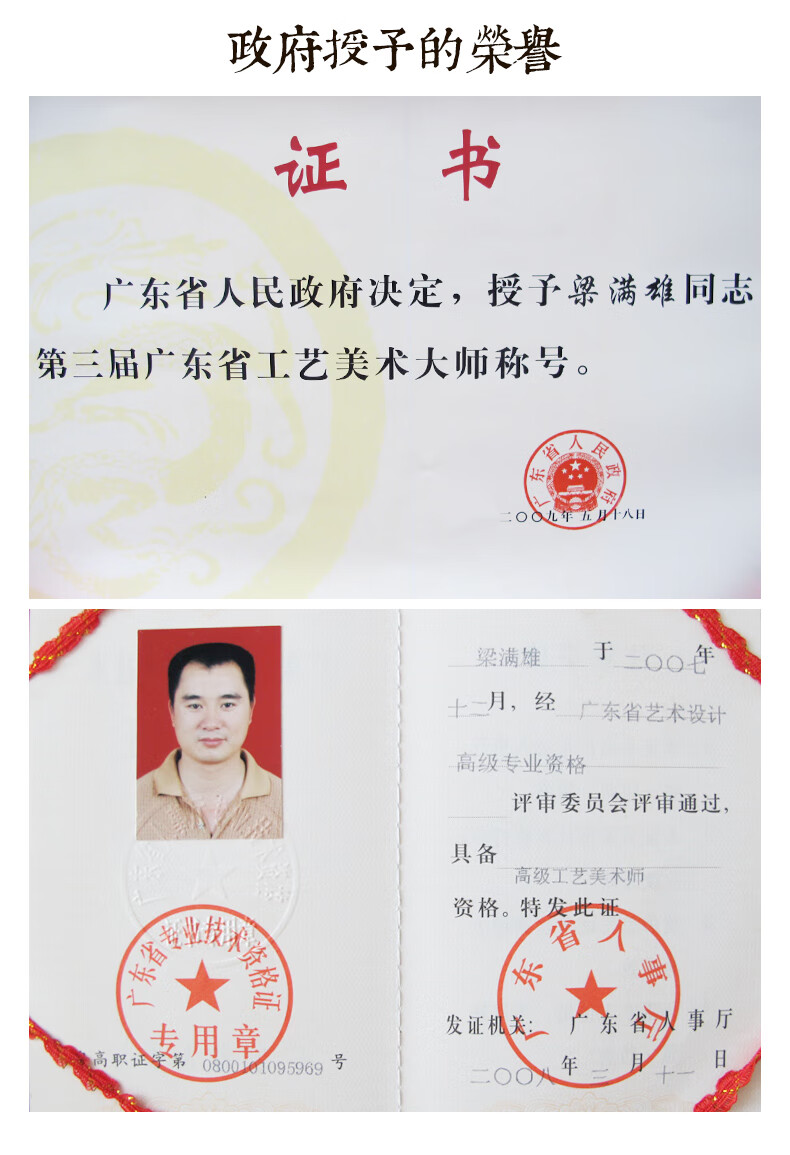 政府授予的榮譽
证 书
广东省人民政府决定，授予梁满雄同志
第三届广东省工艺美术大师称号。
广东省人民政府
二〇〇九年 五月十八日
梁满雄 于 二〇〇七年
十二月，经 广东省艺术设计
高级专业资格
评审委员会评审通过，
具备
高级工艺美术师
资格。特发此证
广东省人事厅
发证机关：广东省人事厅
二〇〇八年 三月十一日
广东省专业技术资格证
专用章
高职证字第 0800101095969 号